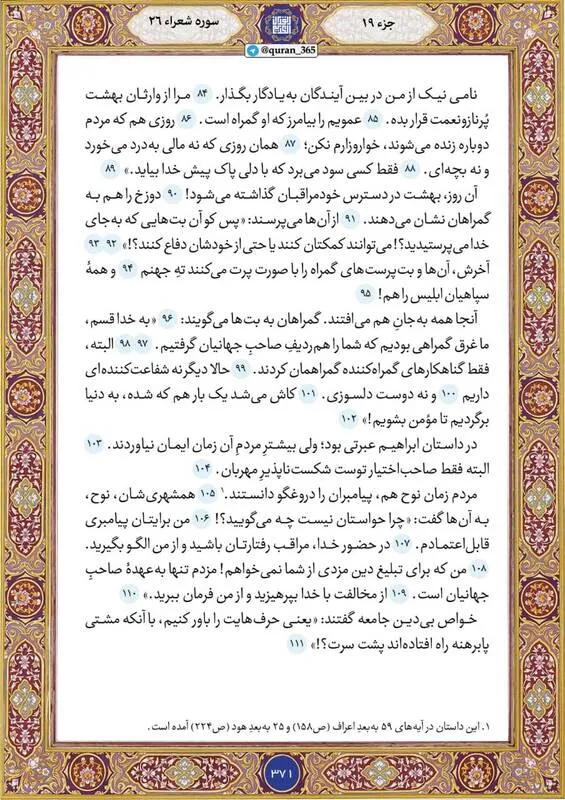 جزء ۱۹
سوره شعراء ۲۶
@quran_365
نامی نیک از من در بین آیندگان به‌یادگار بگذار. ۸۴ مرا از وارثان بهشت
پُرنازونعمت قرار بده. ۸۵ عمویم را بیامرز که او گمراه است. ۸۶ روزی هم که مردم
دوباره زنده می‌شوند، خواروزارم نکن؛ ۸۷ همان روزی که نه مالی به‌درد می‌خورد
و نه بچه‌ای. ۸۸ فقط کسی سود می‌برد که با دلی پاک پیش خدا بیاید.» ۸۹
آن روز، بهشت در دسترس خودمراقبان گذاشته می‌شود! ۹۰ دوزخ را هم به
گمراهان نشان می‌دهند. ۹۱ از آن‌ها می‌پرسند: «پس کو آن بت‌هایی که به‌جای
خدا می‌پرستیدید؟! می‌توانند کمکتان کنند یا حتی از خودشان دفاع کنند؟!» ۹۲ ۹۳
آخرش، آن‌ها و بت‌پرست‌های گمراه را با صورت پرت می‌کنند تهِ جهنم ۹۴ و همهٔ
سپاهیان ابلیس را هم! ۹۵
آنجا همه به‌جانِ هم می‌افتند. گمراهان به بت‌ها می‌گویند: ۹۶ «به خدا قسم،
ما غرق گمراهی بودیم که شما را هم‌ردیفِ صاحبِ جهانیان گرفتیم. ۹۷ ۹۸ البته،
فقط گناهکارهای گمراه‌کننده گمراهمان کردند. ۹۹ حالا دیگر نه شفاعت‌کننده‌ای
داریم ۱۰۰ و نه دوست دلسوزی. ۱۰۱ کاش می‌شد یک بار هم که شده، به دنیا
برگردیم تا مؤمن بشویم!» ۱۰۲
در داستان ابراهیم عبرتی بود؛ ولی بیشترِ مردمِ آن زمان ایمان نیاوردند. ۱۰۳
البته فقط صاحب‌اختیار توست شکست‌ناپذیرِ مهربان. ۱۰۴
مردم زمان نوح هم، پیامبران را دروغگو دانستند.۱ ۱۰۵ همشهری‌شان، نوح،
به آن‌ها گفت: «چرا حواستان نیست چه می‌گویید؟! ۱۰۶ من برایتان پیامبری
قابل‌اعتمادم. ۱۰۷ در حضور خدا، مراقب رفتارتان باشید و از من الگو بگیرید.
۱۰۸ من که برای تبلیغ دین مزدی از شما نمی‌خواهم! مزدم تنها به‌عهدهٔ صاحبِ
جهانیان است. ۱۰۹ از مخالفت با خدا بپرهیزید و از من فرمان ببرید.» ۱۱۰
خواص بی‌دین جامعه گفتند: «یعنی حرف‌هایت را باور کنیم، با آنکه مشتی
پابرهنه راه افتاده‌اند پشت سرت؟!» ۱۱۱
۱. این داستان در آیه‌های ۵۹ به‌بعدِ اعراف (ص۱۵۸) و ۲۵ به‌بعدِ هود (ص۲۲۴) آمده است.
۳۷۱